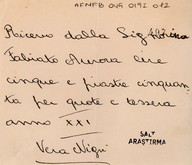 AFNFB 019 0192 012
Ricevo dalla Sig
Fabiato Aurora lire
cinque e piastre cinquan
ta per quote e tessera
anno XXI
SALT
ARAŞTIRMA
Vera Nigri